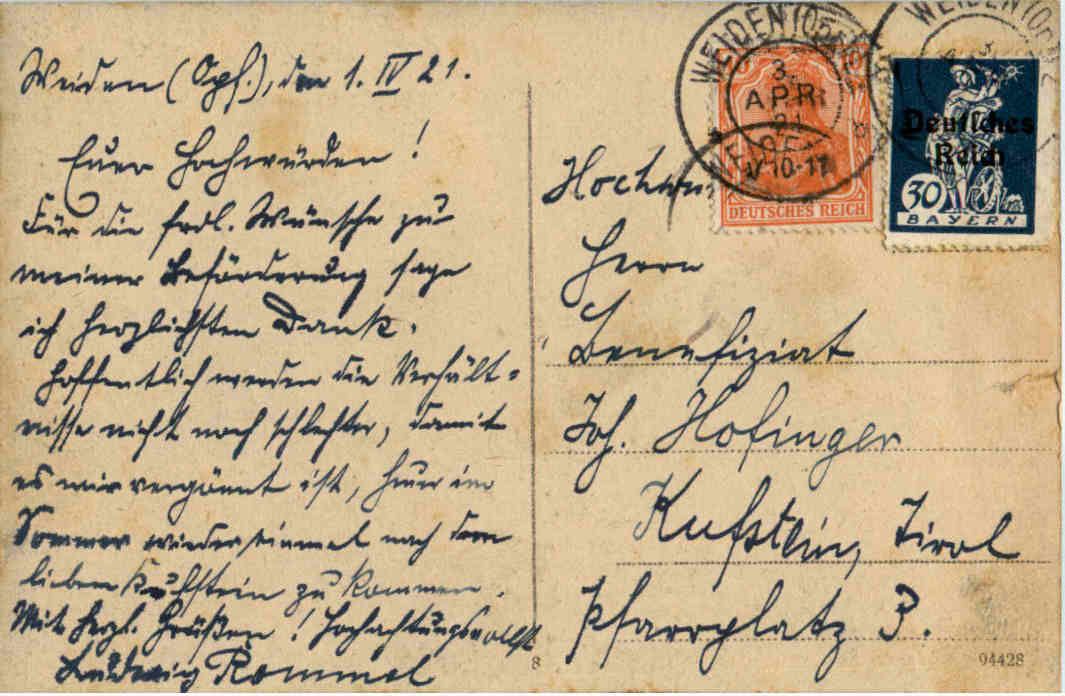 Weiden (Opf.), den 1. IV 21.
Euer Hochwürden!
Für die frdl. Wünsche zu
meiner Beförderung sage
ich herzlichsten Dank.
Hoffentlich werden die Verhält-
nisse nicht noch schlechter, damit
es mir vergönnt ist, heuer im
Sommer wieder einmal nach dem
lieben Kufstein zu kommen.
Mit herzl. Grüßen! Hochachtungsvollst
Ludwig Rommel
WEIDEN (Op
3.
APR
21
V 10-11
DEUTSCHES REICH
WEIDEN (O
Deutsches
Reich
30
BAYERN
Hochw
Herrn
Benefiziat
Joh. Hofinger
Kufstein, Tirol
Pfarrplatz 3.
8
04428